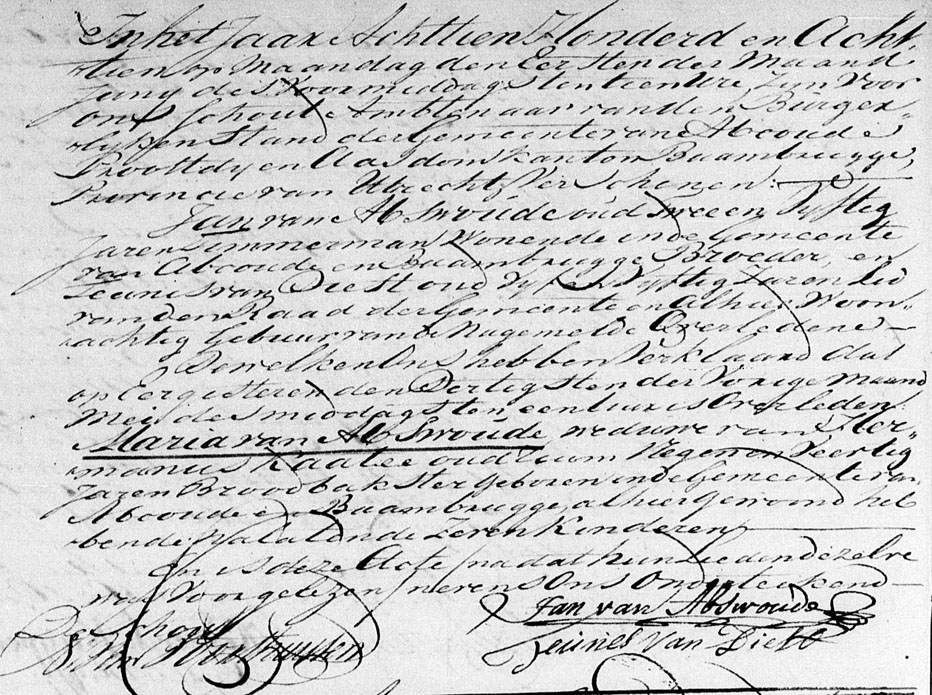 In het Jaar Achttien Honderd en Acht-
tien op Maandag den Eersten der Maand
Juny des Voormiddags ten tien Ure Zyn Voor
ons Schout Ambtenaar van den Burger-
lyken Stand der Gemeente van Abcoude
Proostdy en Aasdom Kanton Baambrugge,
Provincie van Utrecht, Verschenen:
Jan van Abswoude oud twee en Vyftig
Jaren Timmerman Wonende in de Gemeente
van Abcoude en Baambrugge Broeder, en
Teunis van Diest oud Vyf en Vyftig Jaren Lid
van den Raad der Gemeente en alhier Woon-
achtig Gebuur van de Nagemelde Overledene
Dewelken Ons hebben Verklaard dat
op Eergisteren den Dertigsten der Vorige Maand
Mei des middags ten een Uur is Overleden:
Maria van Abswoude, weduwe van Her-
manus Kaatee oud ruim Negen en Veertig
Jaren Broodbakster geboren in de Gemeente van
Abcoude en Baambrugge, alhier gewoond heb
bende, Nalatende Zeven Kinderen
En is deze Acte, na dat hun Lieden dezelve
was Voorgelezen, nevens Ons Onderteekend
De Schout
Jan van Abswoude
Teunes Van Diest